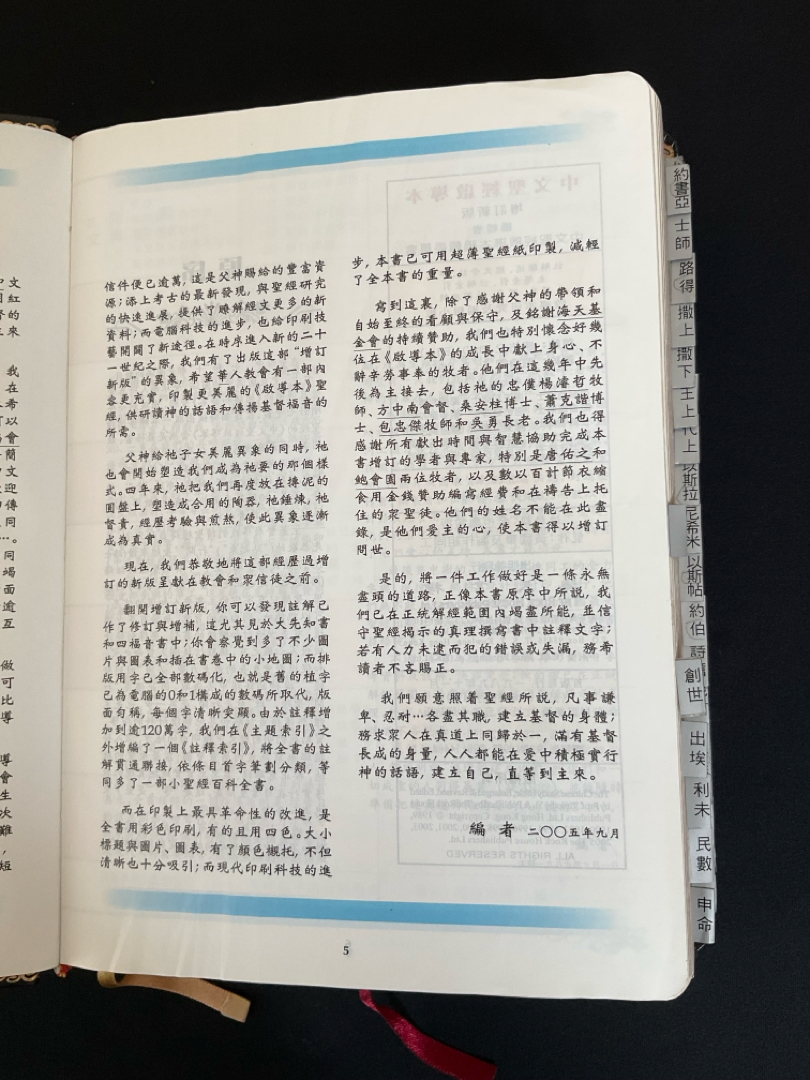 信件便已逾萬，這是父神賜給的豐富資
源；添上考古的最新發現，與聖經研究
的快速進展，提供了瞭解經文更多的新
資料；而電腦科技的進步，也給印刷技
藝開闢了新途徑。在時序進入新的二十
一世紀之際，我們有了出版這部“增訂
新版”的異象，希望華人教會有一部內
容更充實，印製更美麗的《啟導本》聖
經，供研讀神的話語和傳揚基督福音的
所需。
父神給祂子女美麗異象的同時，祂
也會開始塑造我們成為祂要的那個樣
式。四年來，祂把我們再度放在摶泥的
圓盤上，塑造成合用的陶器，祂錘煉，祂
督責，經歷考驗與煎熬，使此異象逐漸
成為真實。
現在，我們恭敬地將這部經歷過增
訂的新版呈獻在教會和眾信徒之前。
翻閱增訂新版，你可以發現註解已
作了修訂與增補，這尤其見於大先知書
和四福音書中；你會察覺到多了不少圖
片與圖表和插在書卷中的小地圖；而排
版用字已全部數碼化，也就是舊的植字
已為電腦的0和1構成的數碼所取代，版
面勻稱，每個字清晰突顯。由於註釋增
加到逾120萬字，我們在《主題索引》之
外增編了一個《註釋索引》，將全書的註
解貫通聯接，依條目首字筆劃分類，等
同多了一部小聖經百科全書。
而在印製上最具革命性的改進，是
全書用彩色印刷，有的且用四色。大小
標題與圖片、圖表，有了顏色襯托，不但
清晰也十分吸引；而現代印刷科技的進
步，本書已可用超薄聖經紙印製，減輕
了全本書的重量。
寫到這裏，除了感謝父神的帶領和
自始至終的看顧與保守，及銘謝海天基
金會的持續贊助，我們也特別懷念好幾
位在《啟導本》的成長中獻上身心、不
辭辛勞事奉的牧者。他們在這幾年中先
後為主接去，包括祂的忠僕楊濬哲牧
師、方中南會督、桑安柱博士、蕭克諧博
士、包忠傑牧師和吳勇長老。我們也得
感謝所有獻出時間與智慧協助完成本
書增訂的學者與專家，特別是唐佑之和
鮑會園兩位牧者，以及數以百計節衣縮
食用金錢贊助編寫經費和在禱告上托
住的眾聖徒。他們的姓名不能在此盡
錄，是他們愛主的心，使本書得以增訂
問世。
是的，將一件工作做好是一條永無
盡頭的道路，正像本書原序中所說，我
們已在正統解經範圍內竭盡所能，並信
守聖經揭示的真理撰寫書中註釋文字；
若有人力未逮而犯的錯誤或失漏，務希
讀者不吝賜正。
我們願意照着聖經所說，凡事謙
卑、忍耐…各盡其職，建立基督的身體；
務求眾人在真道上同歸於一，滿有基督
長成的身量，人人都能在愛中積極實行
神的話語，建立自己，直等到主來。
編 者 二〇〇五年九月
5
約書亞
士師
路得
撒上
撒下
王上
代上
以斯拉
尼希米
以斯帖
約伯
詩
創世
出埃
利未
民數
申命